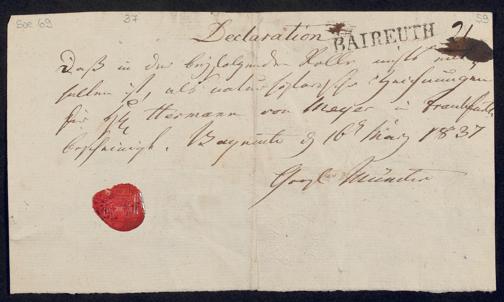 Soe 69
37
59
Declaration
BAIREUTH
Daß in der beyfolgenden Rolle nichts
ist, als naturhistorische Zeichnungen
für Hermann von Meyer in Frankfurt
bescheinigt. Bayreuth d 16 März 1837
Münster